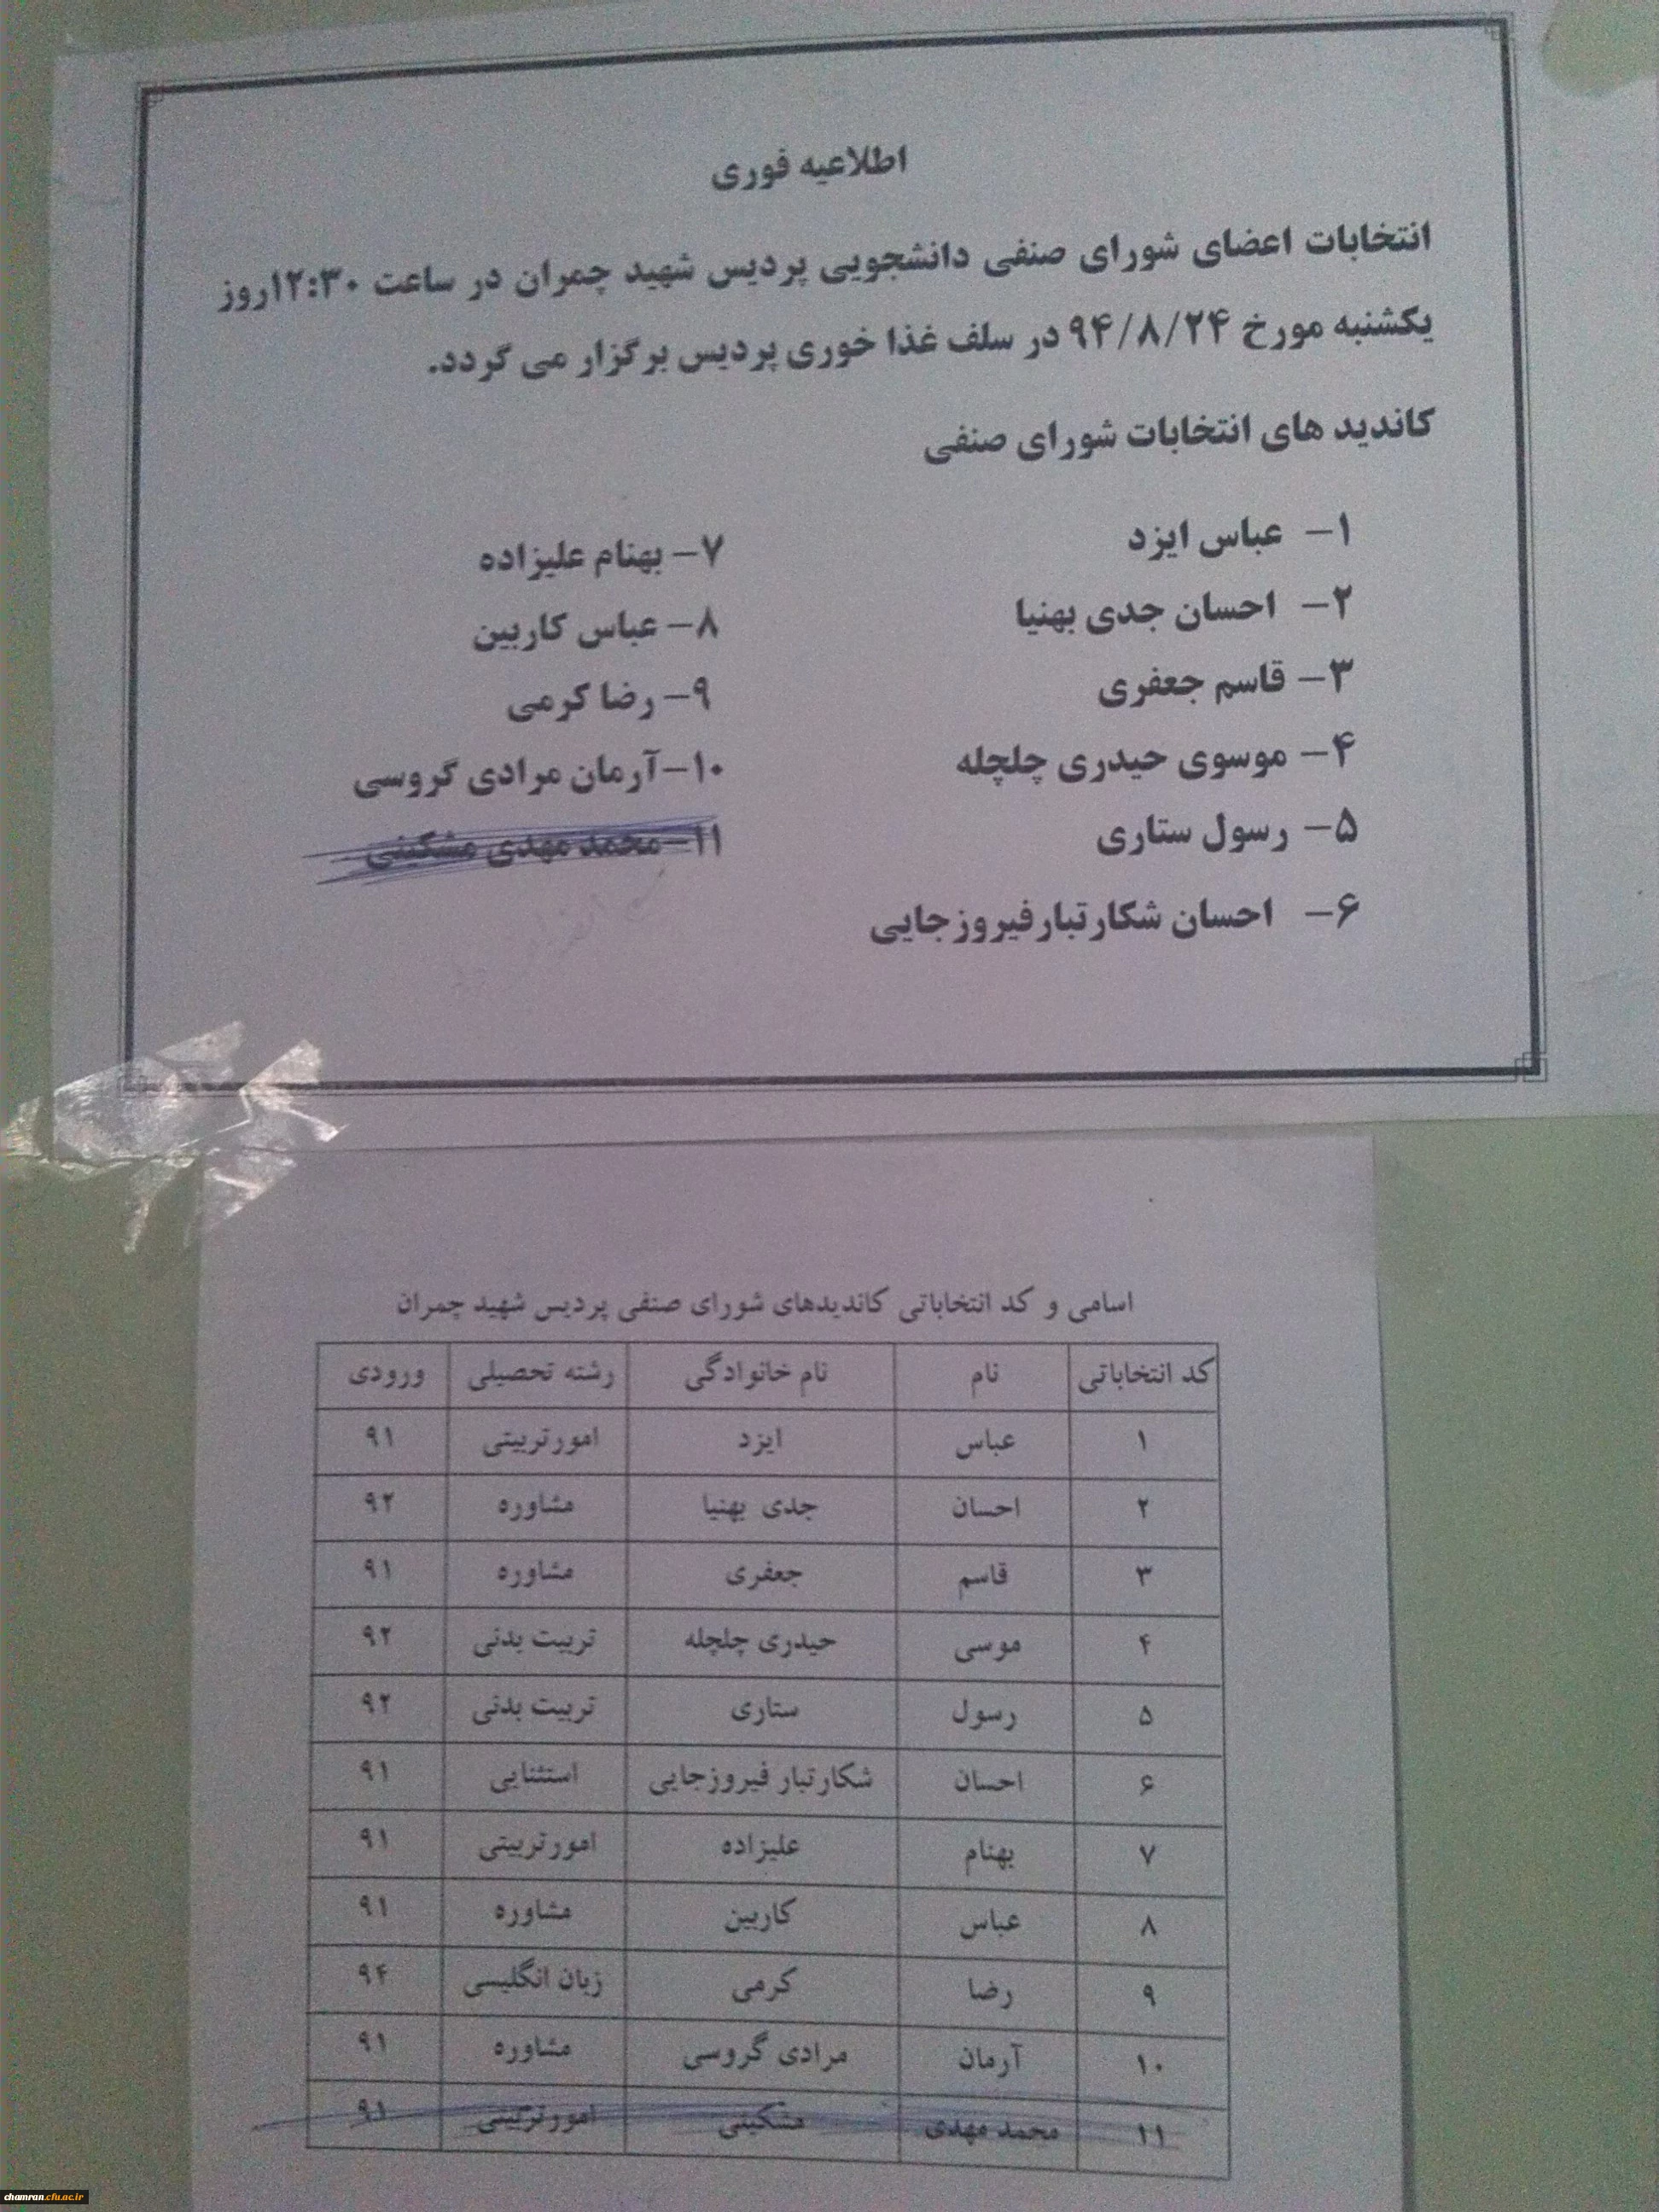 اطلاعیه فوری
انتخابات اعضای شورای صنفی دانشجویی پردیس شهید چمران در ساعت ۱۲:۳۰روز
یکشنبه مورخ ۹۴/۸/۲۴ در سلف غذا خوری پردیس برگزار می گردد.
کاندید های انتخابات شورای صنفی
۱- عباس ایزد
۲- احسان جدی بهنیا
۳- قاسم جعفری
۴- موسوی حیدری چلچله
۵- رسول ستاری
۶- احسان شکارتبارفیروزجایی
۷- بهنام علیزاده
۸- عباس کاربین
۹- رضا کرمی
۱۰-آرمان مرادی گروسی
۱۱-محمد مهدی مشکینی
اسامی و کد انتخاباتی کاندیدهای شورای صنفی پردیس شهید چمران
کد انتخاباتی نام نام خانوادگی رشته تحصیلی ورودی
۱ عباس ایزد امورتربیتی ۹۱
۲ احسان جدی بهنیا مشاوره ۹۲
۳ قاسم جعفری مشاوره ۹۱
۴ موسی حیدری چلچله تربیت بدنی ۹۲
۵ رسول ستاری تربیت بدنی ۹۲
۶ احسان شکارتبار فیروزجایی استثنایی ۹۱
۷ بهنام علیزاده امورتربیتی ۹۱
۸ عباس کاربین مشاوره ۹۱
۹ رضا کرمی زبان انگلیسی ۹۴
۱۰ آرمان مرادی گروسی مشاوره ۹۱
۱۱ محمد مهدی مشکینی امورتربیتی ۹۱
chamran.cfu.ac.ir